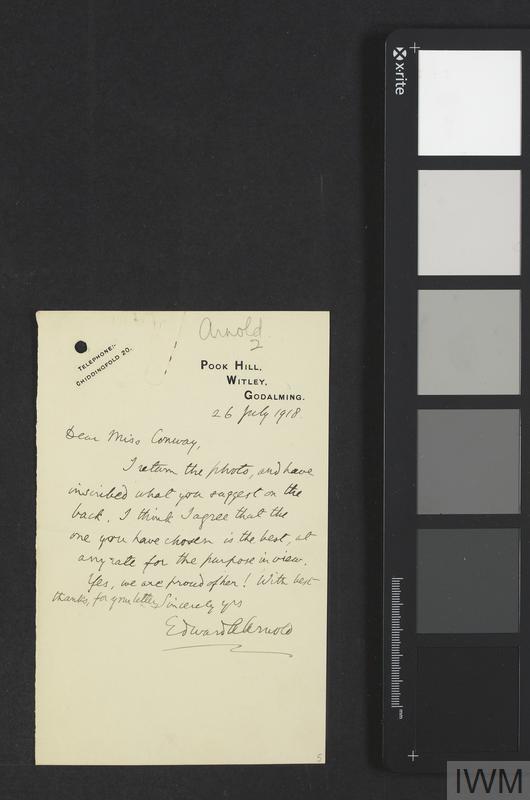 Arnold
2
TELEPHONE:-
CHIDDINGFOLD 20.
POOK HILL,
WITLEY,
GODALMING.
26 July 1918.
Dear Miss Conway,
I return the photo, and have
inscribed what you suggest on the
back. I think I agree that the
one you have chosen is the best, at
any rate for the purpose in view.
Yes, we are proud of her! With best
thanks, for your letter, Sincerely yrs
Edward A Arnold
5
x-rite
mm
IWM